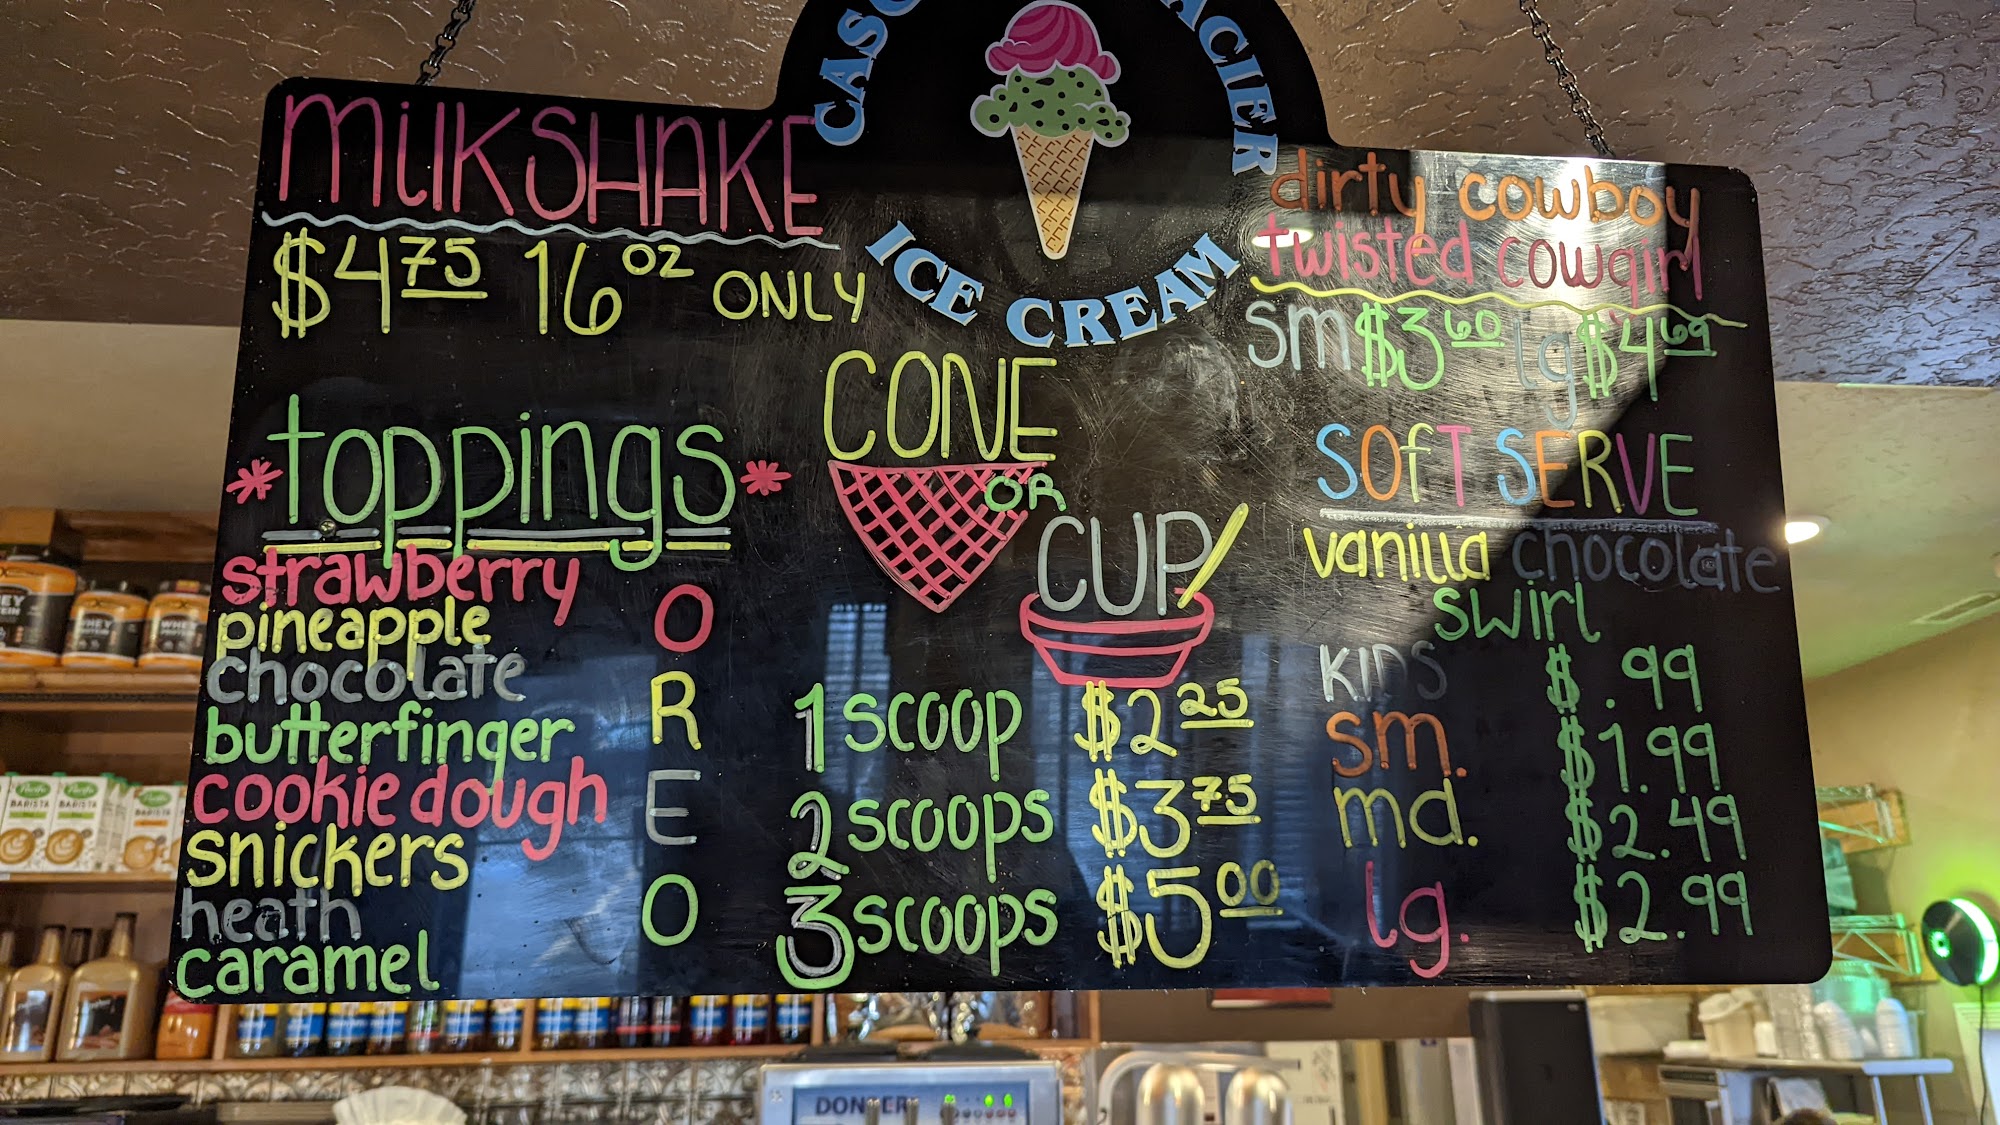 ICE CREAM
MilkSHAKE
$4.75 16 oz ONLY
*toppings*
strawberry
pineapple
chocolate
butterfinger
cookie dough
snickers
heath
caramel
OREO
CONE
OR
CUP
1 scoop $2.25
2 scoops $3.75
3 scoops $5.00
dirty cowboy
twisted cowgirl
sm $3.60 lg $4.69
SOfT SERVE
vanilla chocolate
swirl
KIDS $.99
sm. $1.99
md. $2.49
lg. $2.99
BARISTA
BARISTA